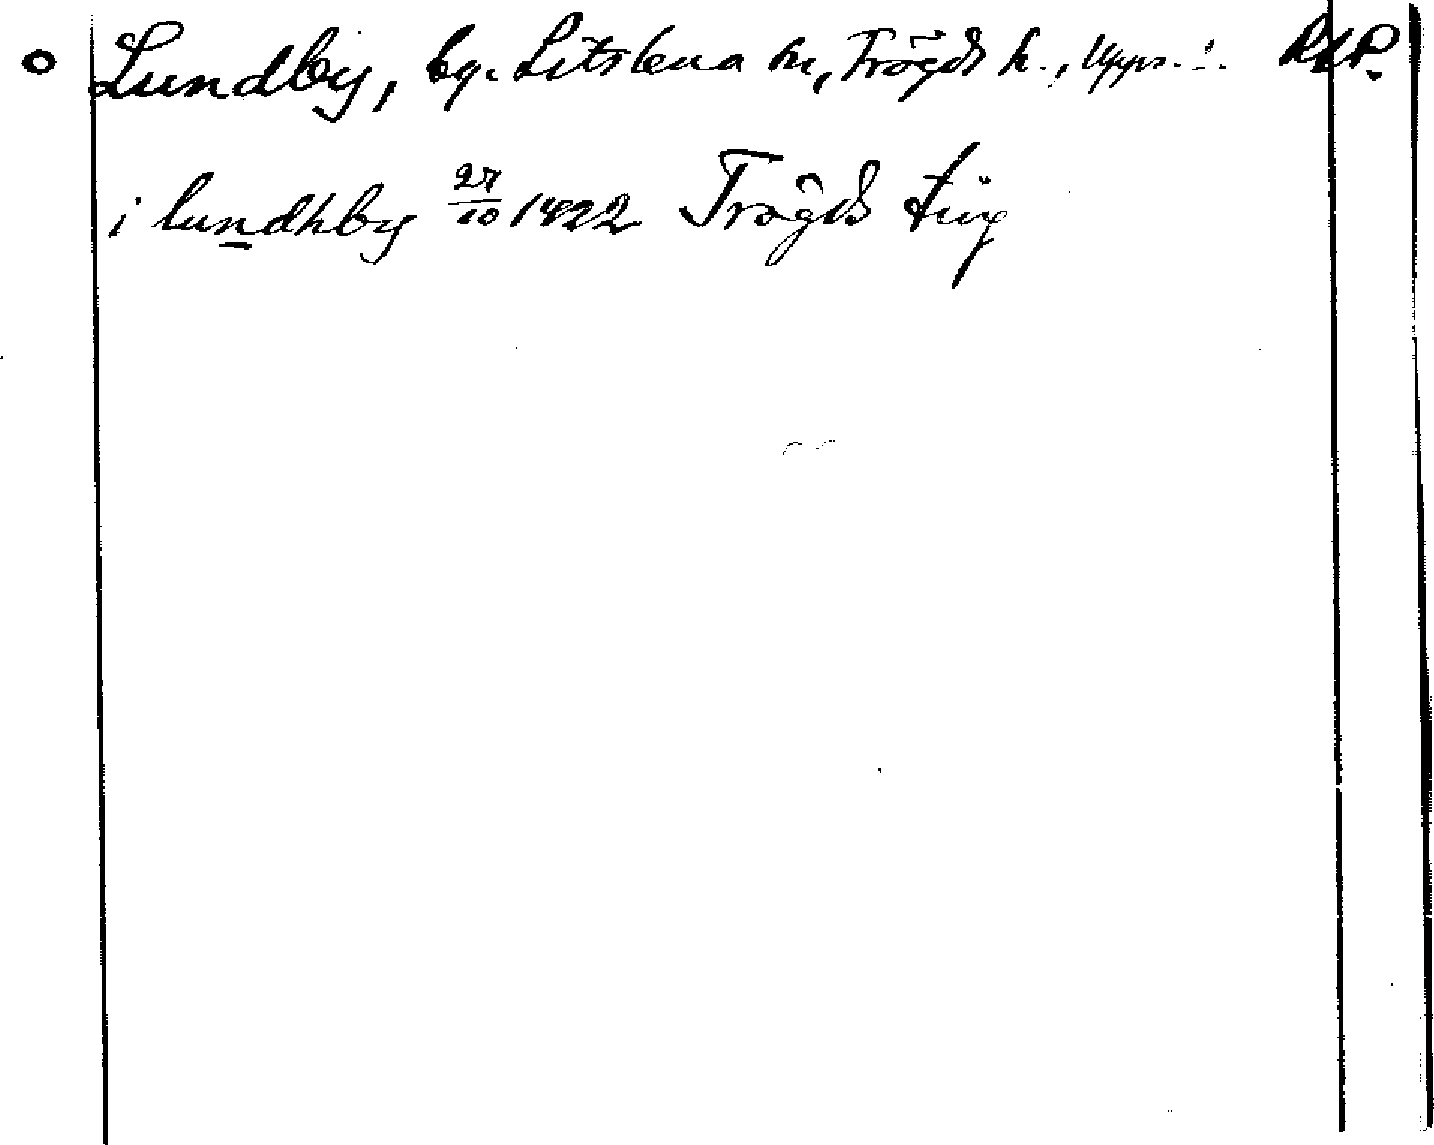 Lundby, by. Litslena sn, Trögds h., Upps. l. RAP.
i lundhby 27/10 1422 Trögds ting